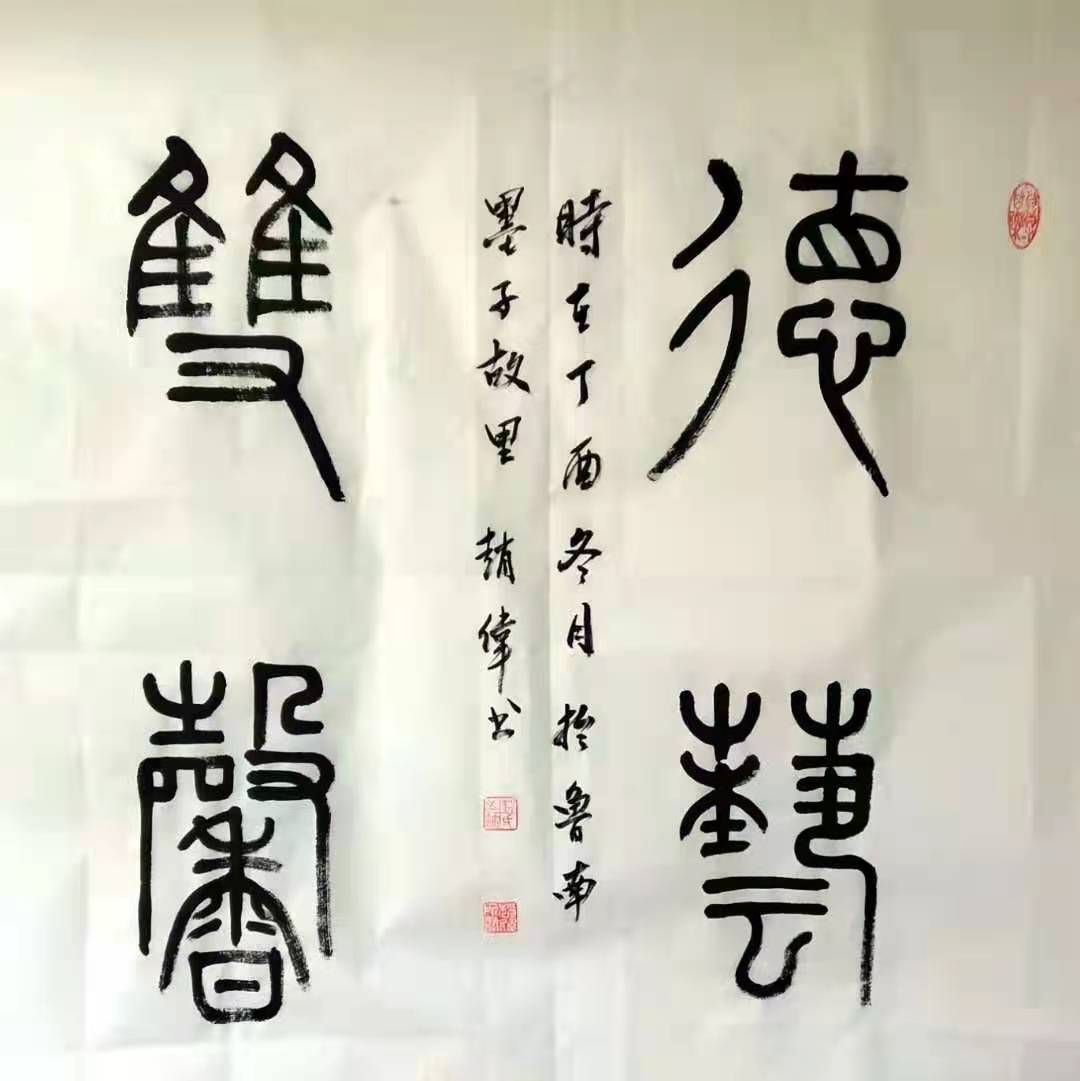 德藝
時在丁酉冬月於魯南
墨子故里 趙偉书
雙馨